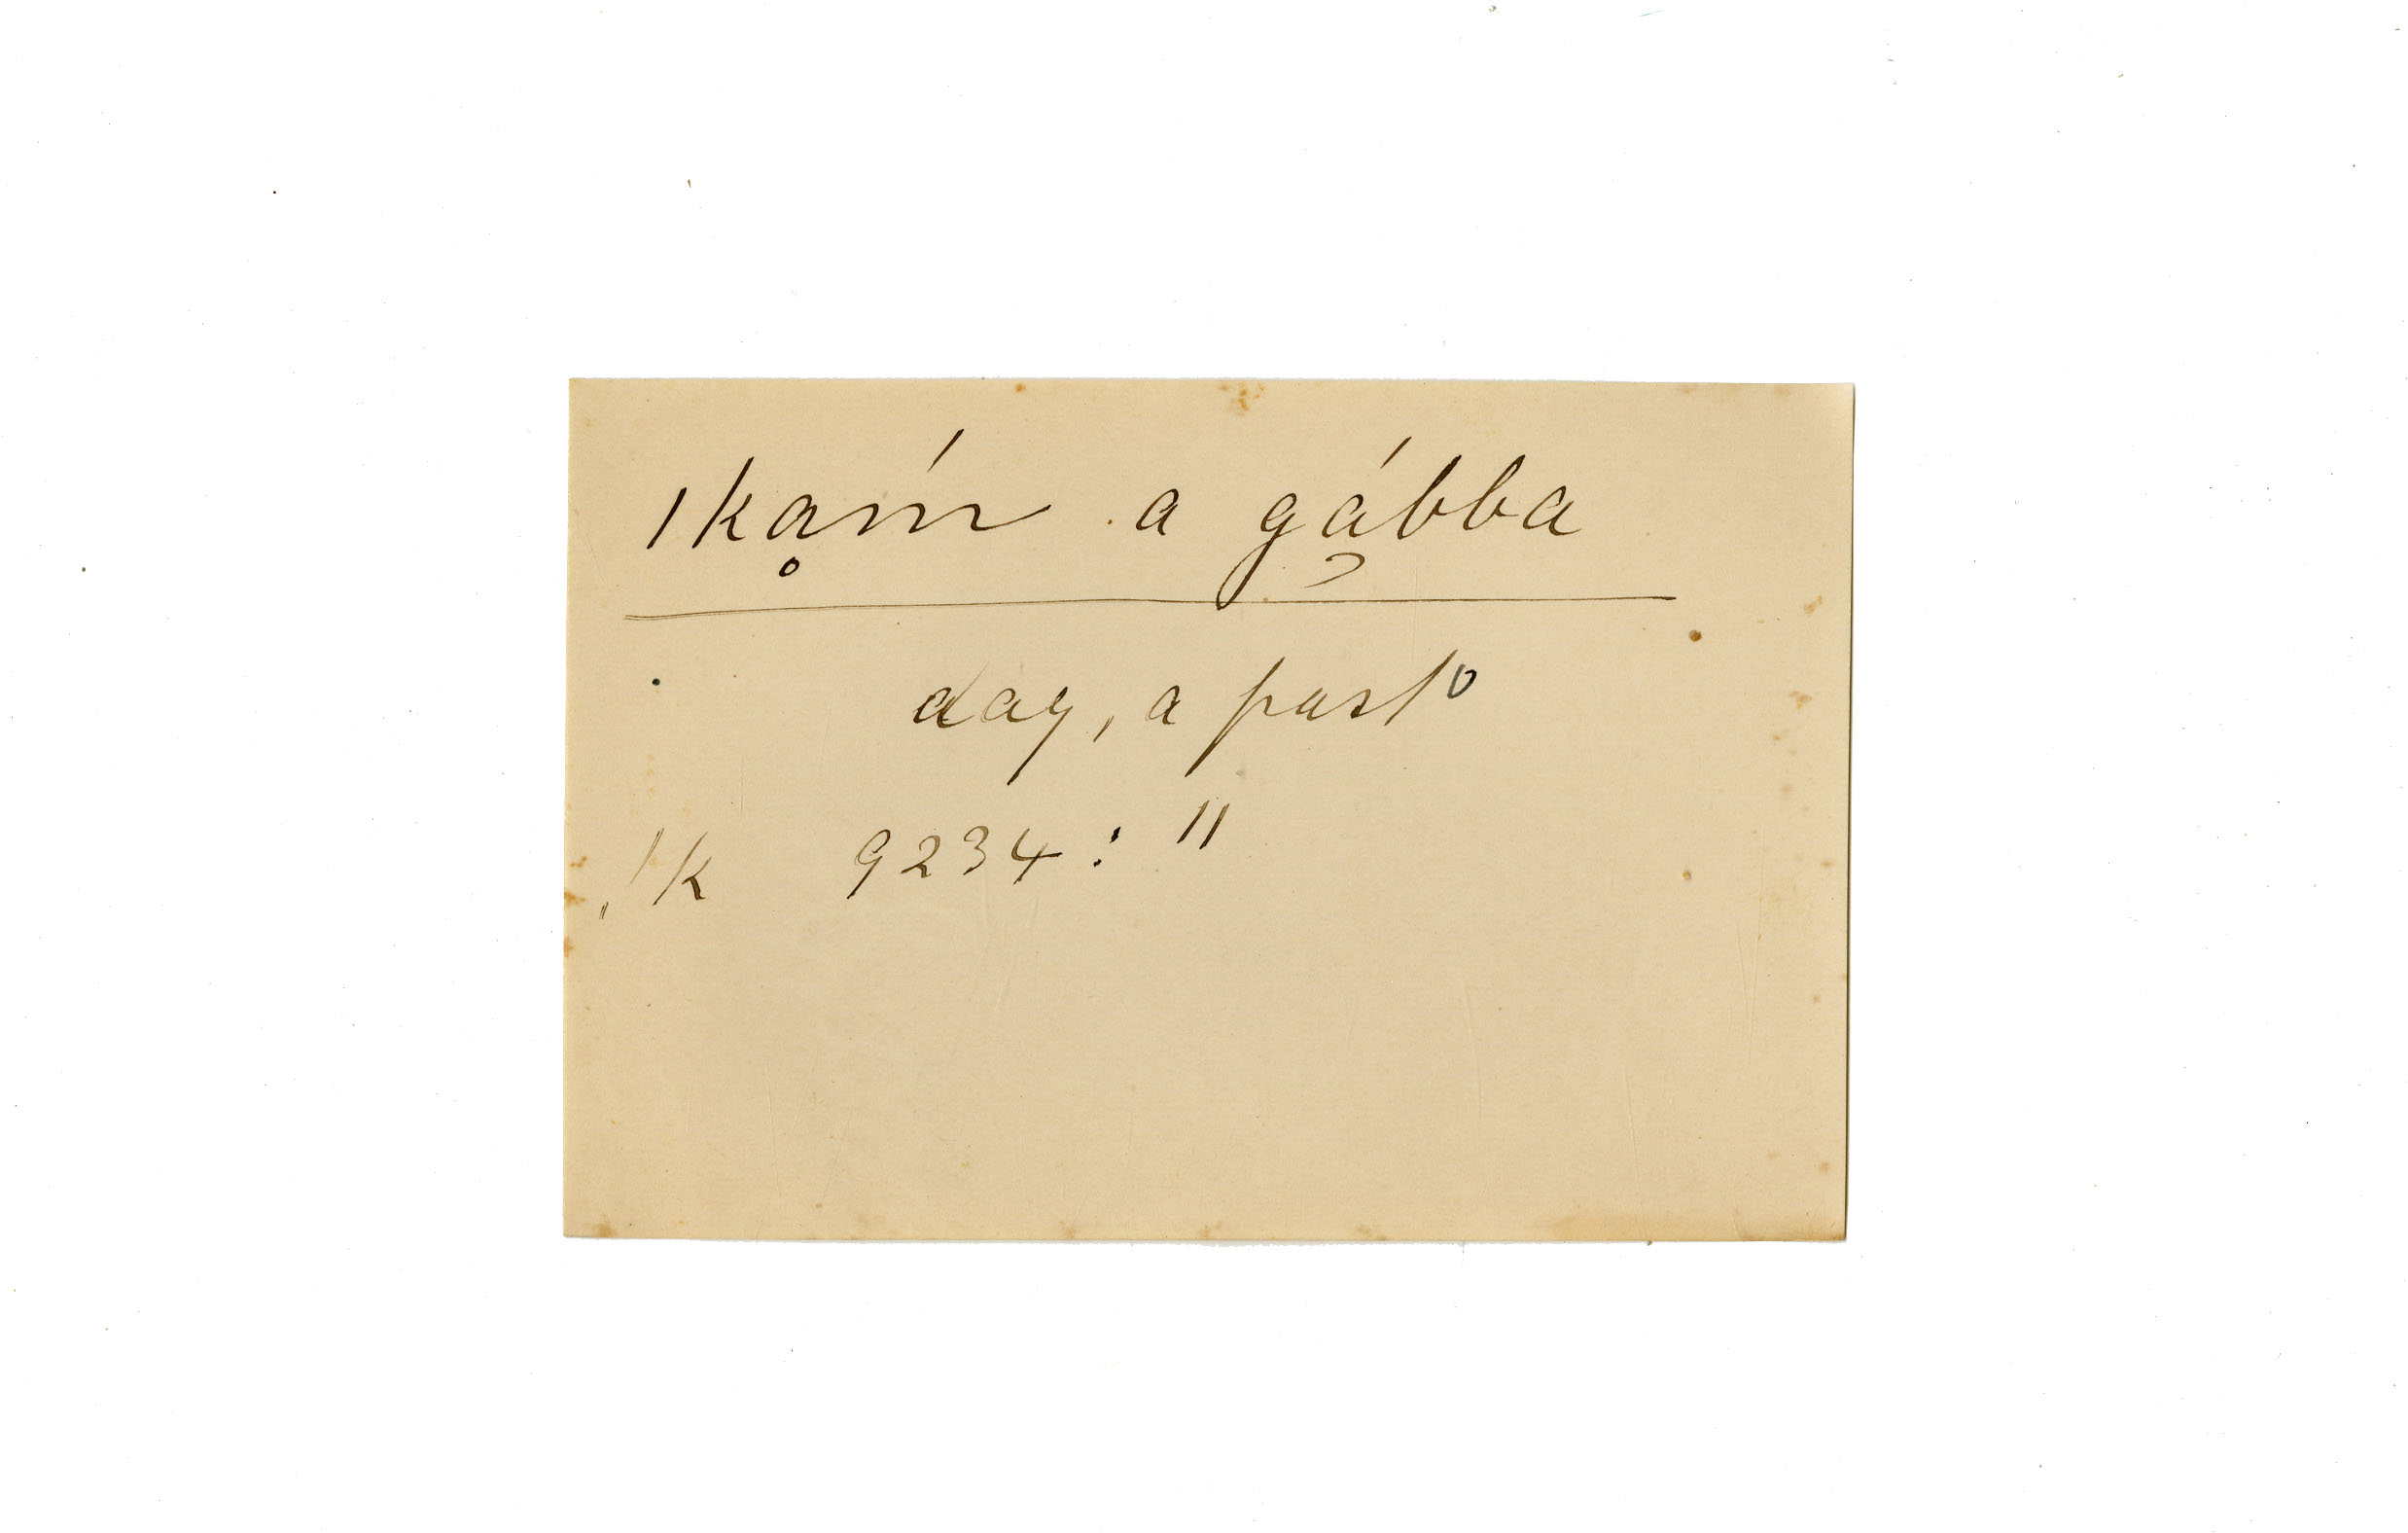 ǀkạḿ a gábba
day, a past
ǃk 9234: "